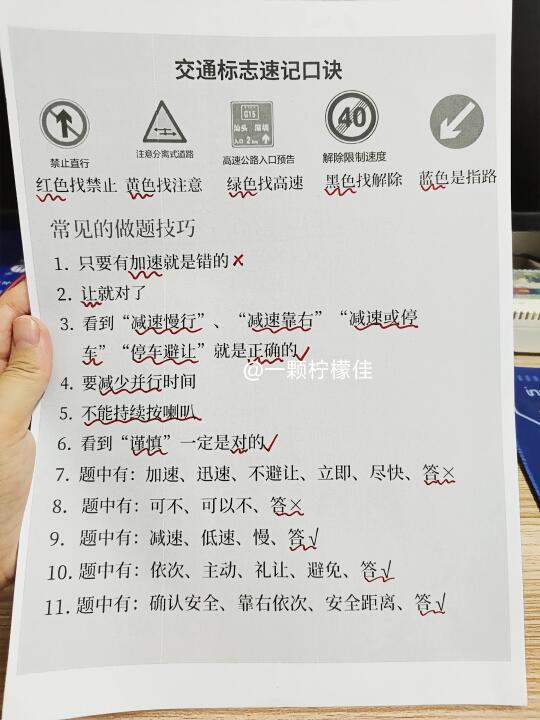 交通标志速记口诀
40
G15
汕头 深圳
入口 2km
禁止直行
注意分离式道路
高速公路入口预告
解除限制速度
红色找禁止 黄色找注意 绿色找高速 黑色找解除 蓝色是指路
常见的做题技巧
1. 只要有加速就是错的×
2. 让就对了
3. 看到“减速慢行”、“减速靠右”“减速或停
车”“停车避让”就是正确的✓
@一颗柠檬佳
4. 要减少并行时间
5. 不能持续按喇叭
6. 看到“谨慎”一定是对的✓
7. 题中有：加速、迅速、不避让、立即、尽快、答×
8. 题中有：可不、可以不、答×
9. 题中有：减速、低速、慢、答√
10. 题中有：依次、主动、礼让、避免、答√
11. 题中有：确认安全、靠右依次、安全距离、答√